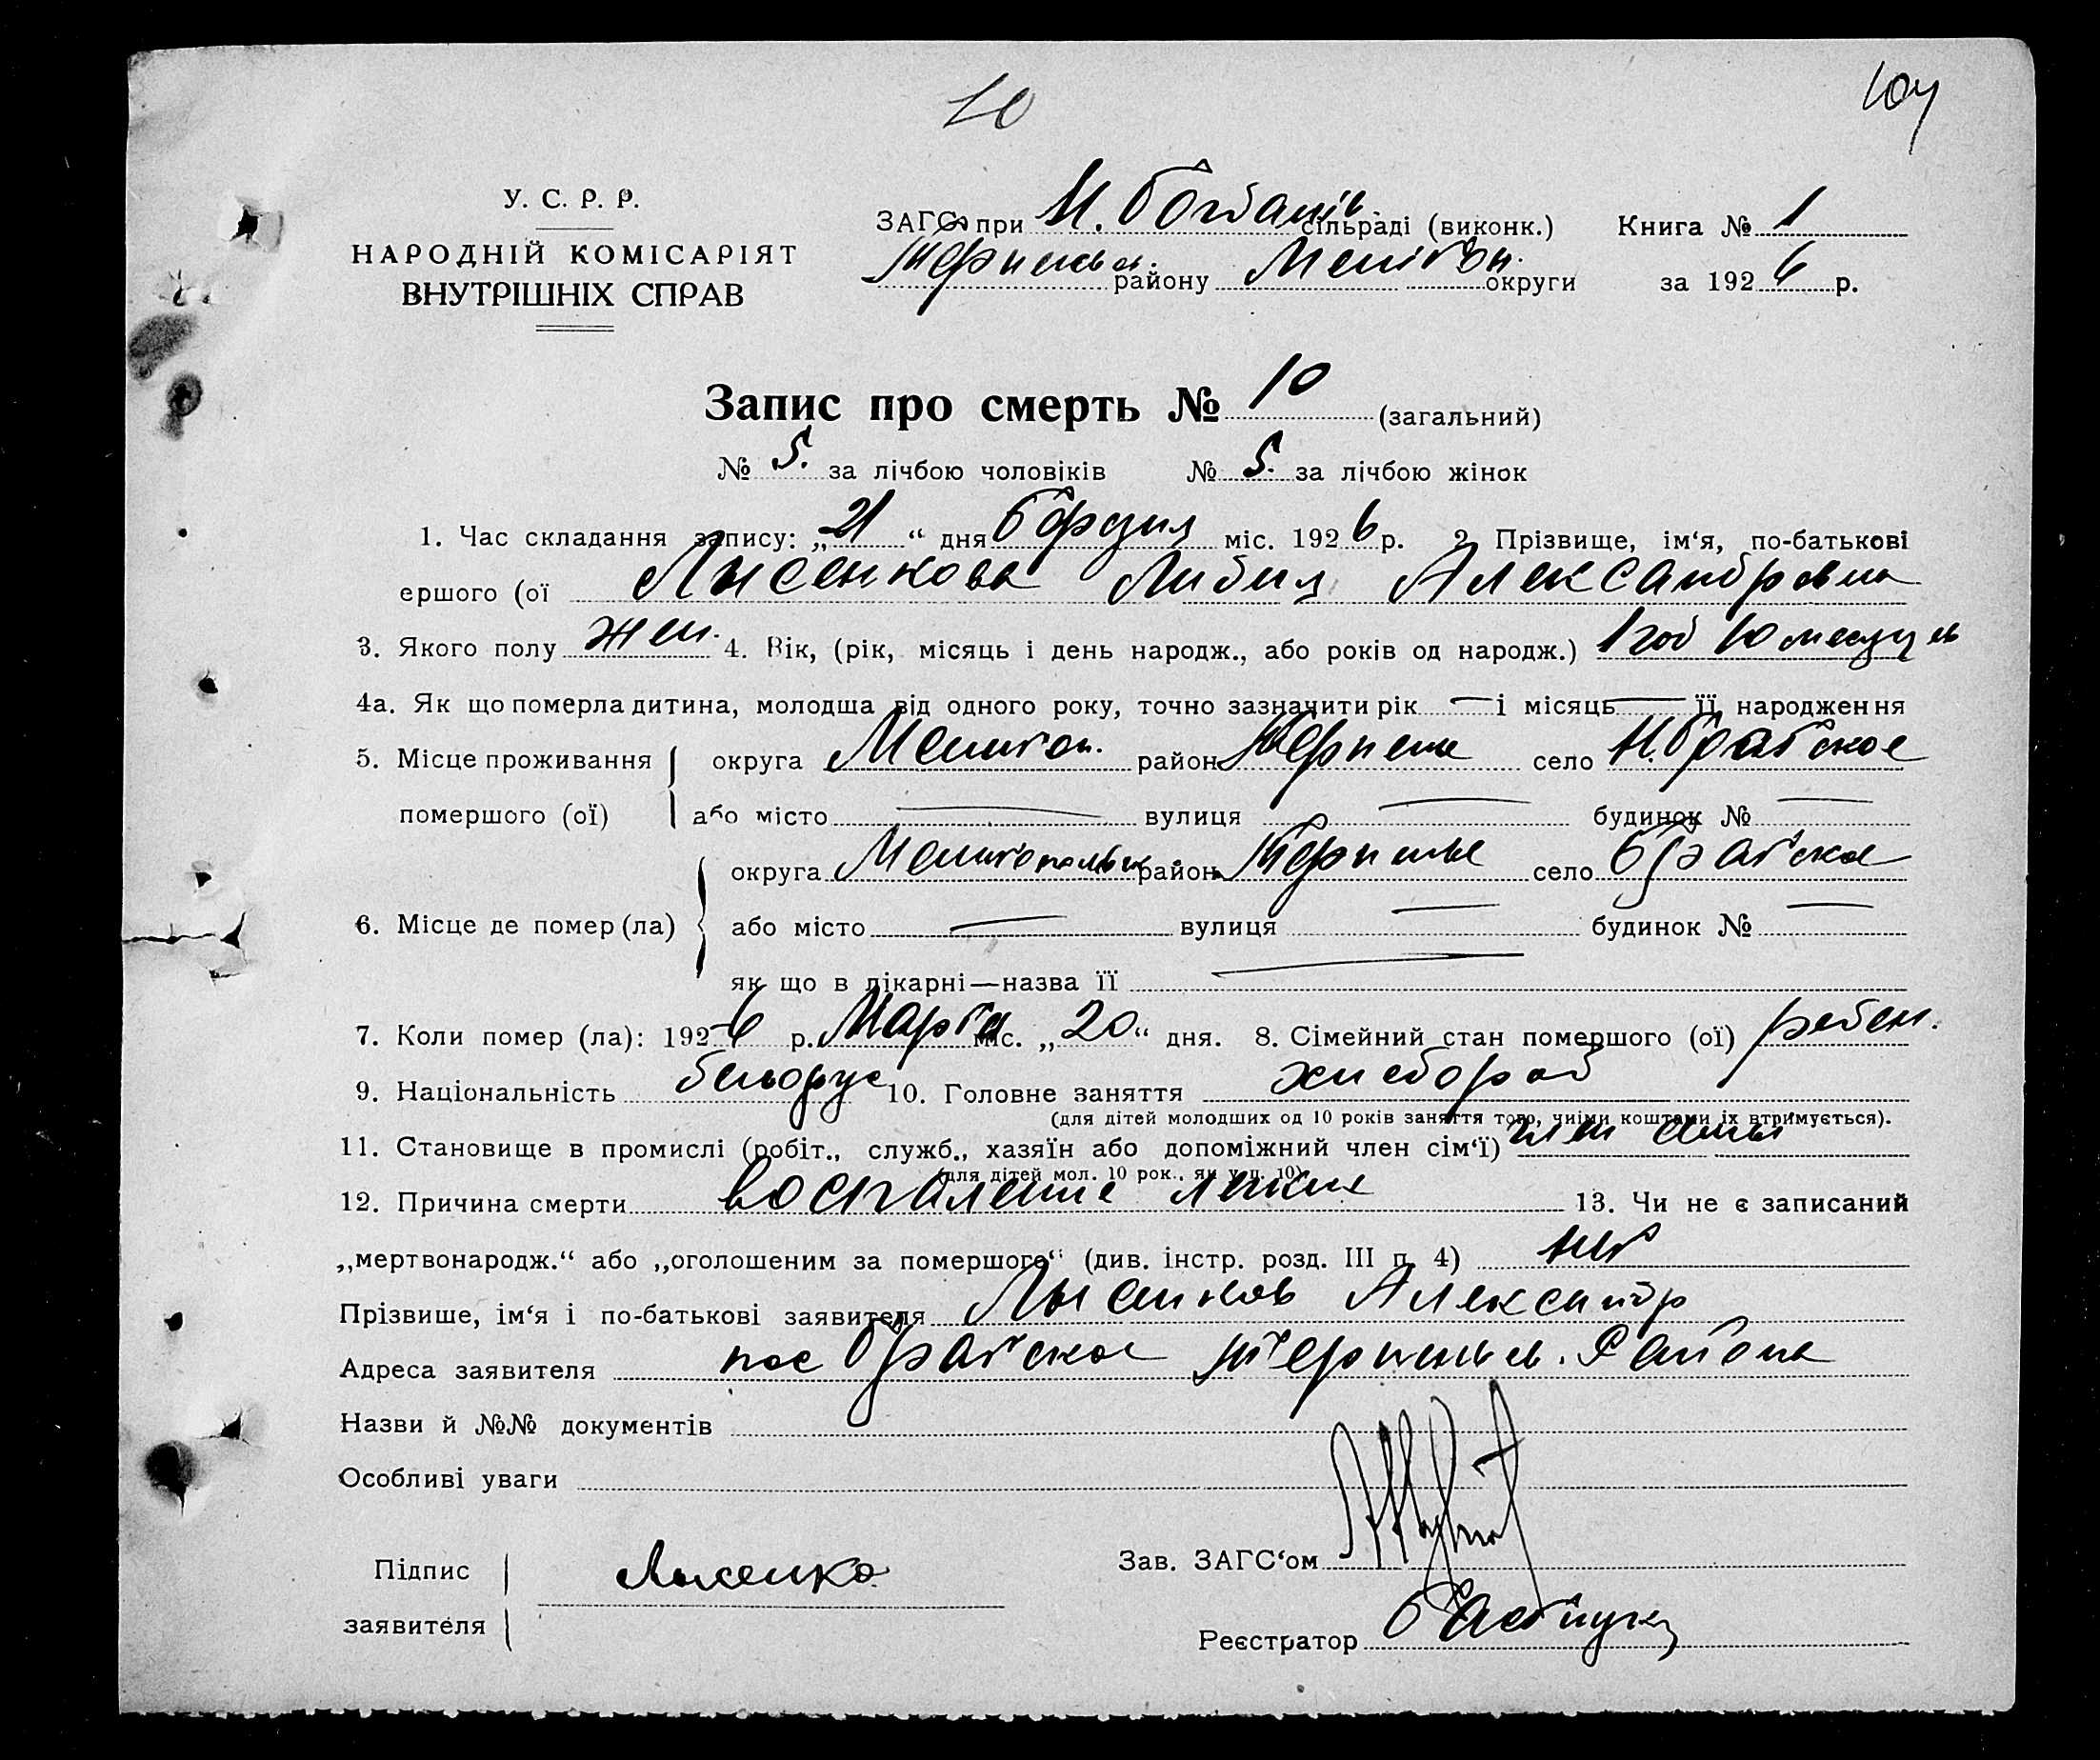 10
104
У. С. Р. Р.
НАРОДНІЙ КОМІСАРІЯТ
ВНУТРІШНІХ СПРАВ
ЗАГС при Н. Богданів. сільраді (виконк.) Книга № 1
району округи за 1926 р.
Запис про смерть № 10 (загальний)
№ 5. за лічбою чоловіків № 5. за лічбою жінок
1. Час складання запису: „21“ дня міс. 1926 р. 2. Прізвище, ім‘я, по-батькові
ершого (ої Лисенкова Лидия Александровна
3. Якого полу жен. 4. Вік, (рік, місяць і день народж., або років од народж.) 1 год 10 месяцев
4а. Як що померла дитина, молодша від одного року, точно зазначити рік — і місяць — її народження
5. Місце проживання округа Мелитоп. район село Н. Братское
помершого (ої) або місто — вулиця — будинок № —
округа Мелитопольск район село Братское
6. Місце де помер (ла) або місто — вулиця — будинок № —
як що в лікарні—назва її —
7. Коли помер (ла): 1926 р. Марта міс. „20“ дня. 8. Сімейний стан помершого (ої) ребен.
9. Національність белорус 10. Головне заняття хлебороб
(для дітей молодших од 10 років заняття того, чиїми коштами їх втримується).
11. Становище в промислі (робіт., служб., хазяїн або допоміжний член сім‘ї) член семьи
(для дітей мол. 10 рок., як у п. 10)
12. Причина смерти воспаление легких 13. Чи не є записаний
„мертвонародж.“ або „оголошеним за помершого“ (див. інстр. розд. III п. 4) нет
Прізвище, ім‘я і по-батькові заявителя Лысенков Александр
Адреса заявителя пос Братское Района
Назви й №№ документів
Особливі уваги
Підпис
заявителя
Лысенко
Зав. ЗАГС‘ом
Реєстратор